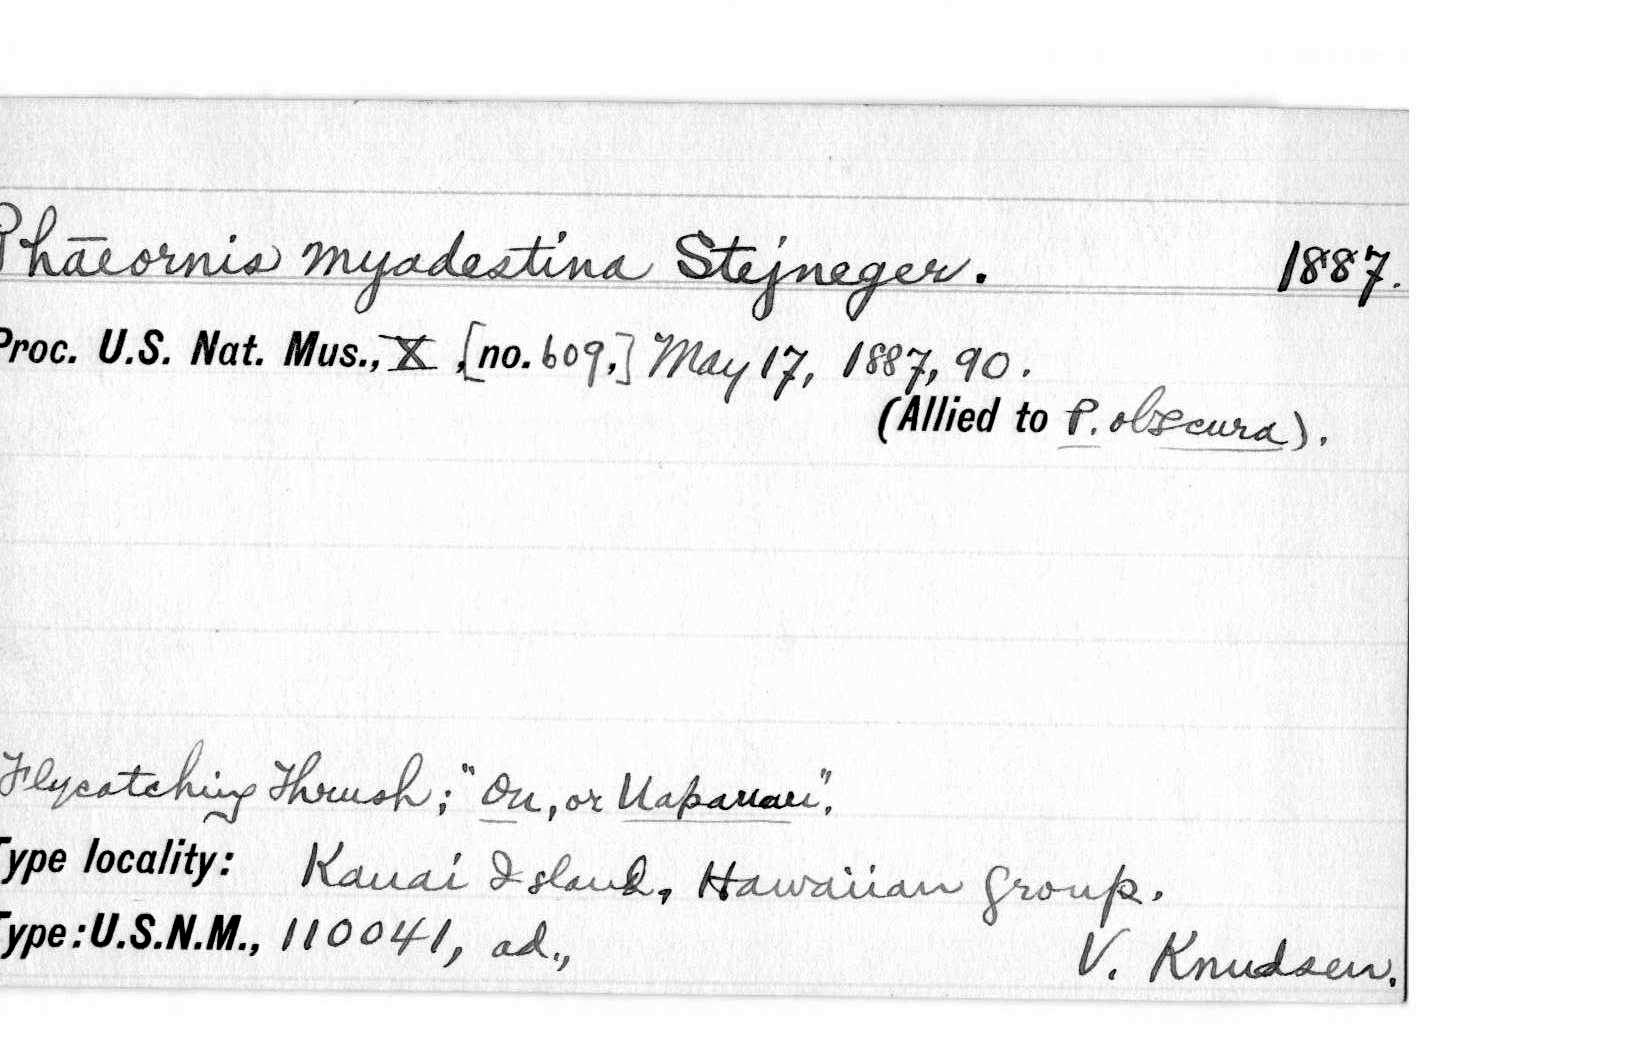 Phaeornis myadestina Stejneger. 1887.
Proc. U.S. Nat. Mus., X, [no. 609,] May 17, 1887, 90.
(Allied to P. obscura).
Flycatching Thrush; "Ou, or
Type locality: Kauai Island, Hawaiian Group.
Type: U.S.N.M., 110041, ad., V. Knudsen.